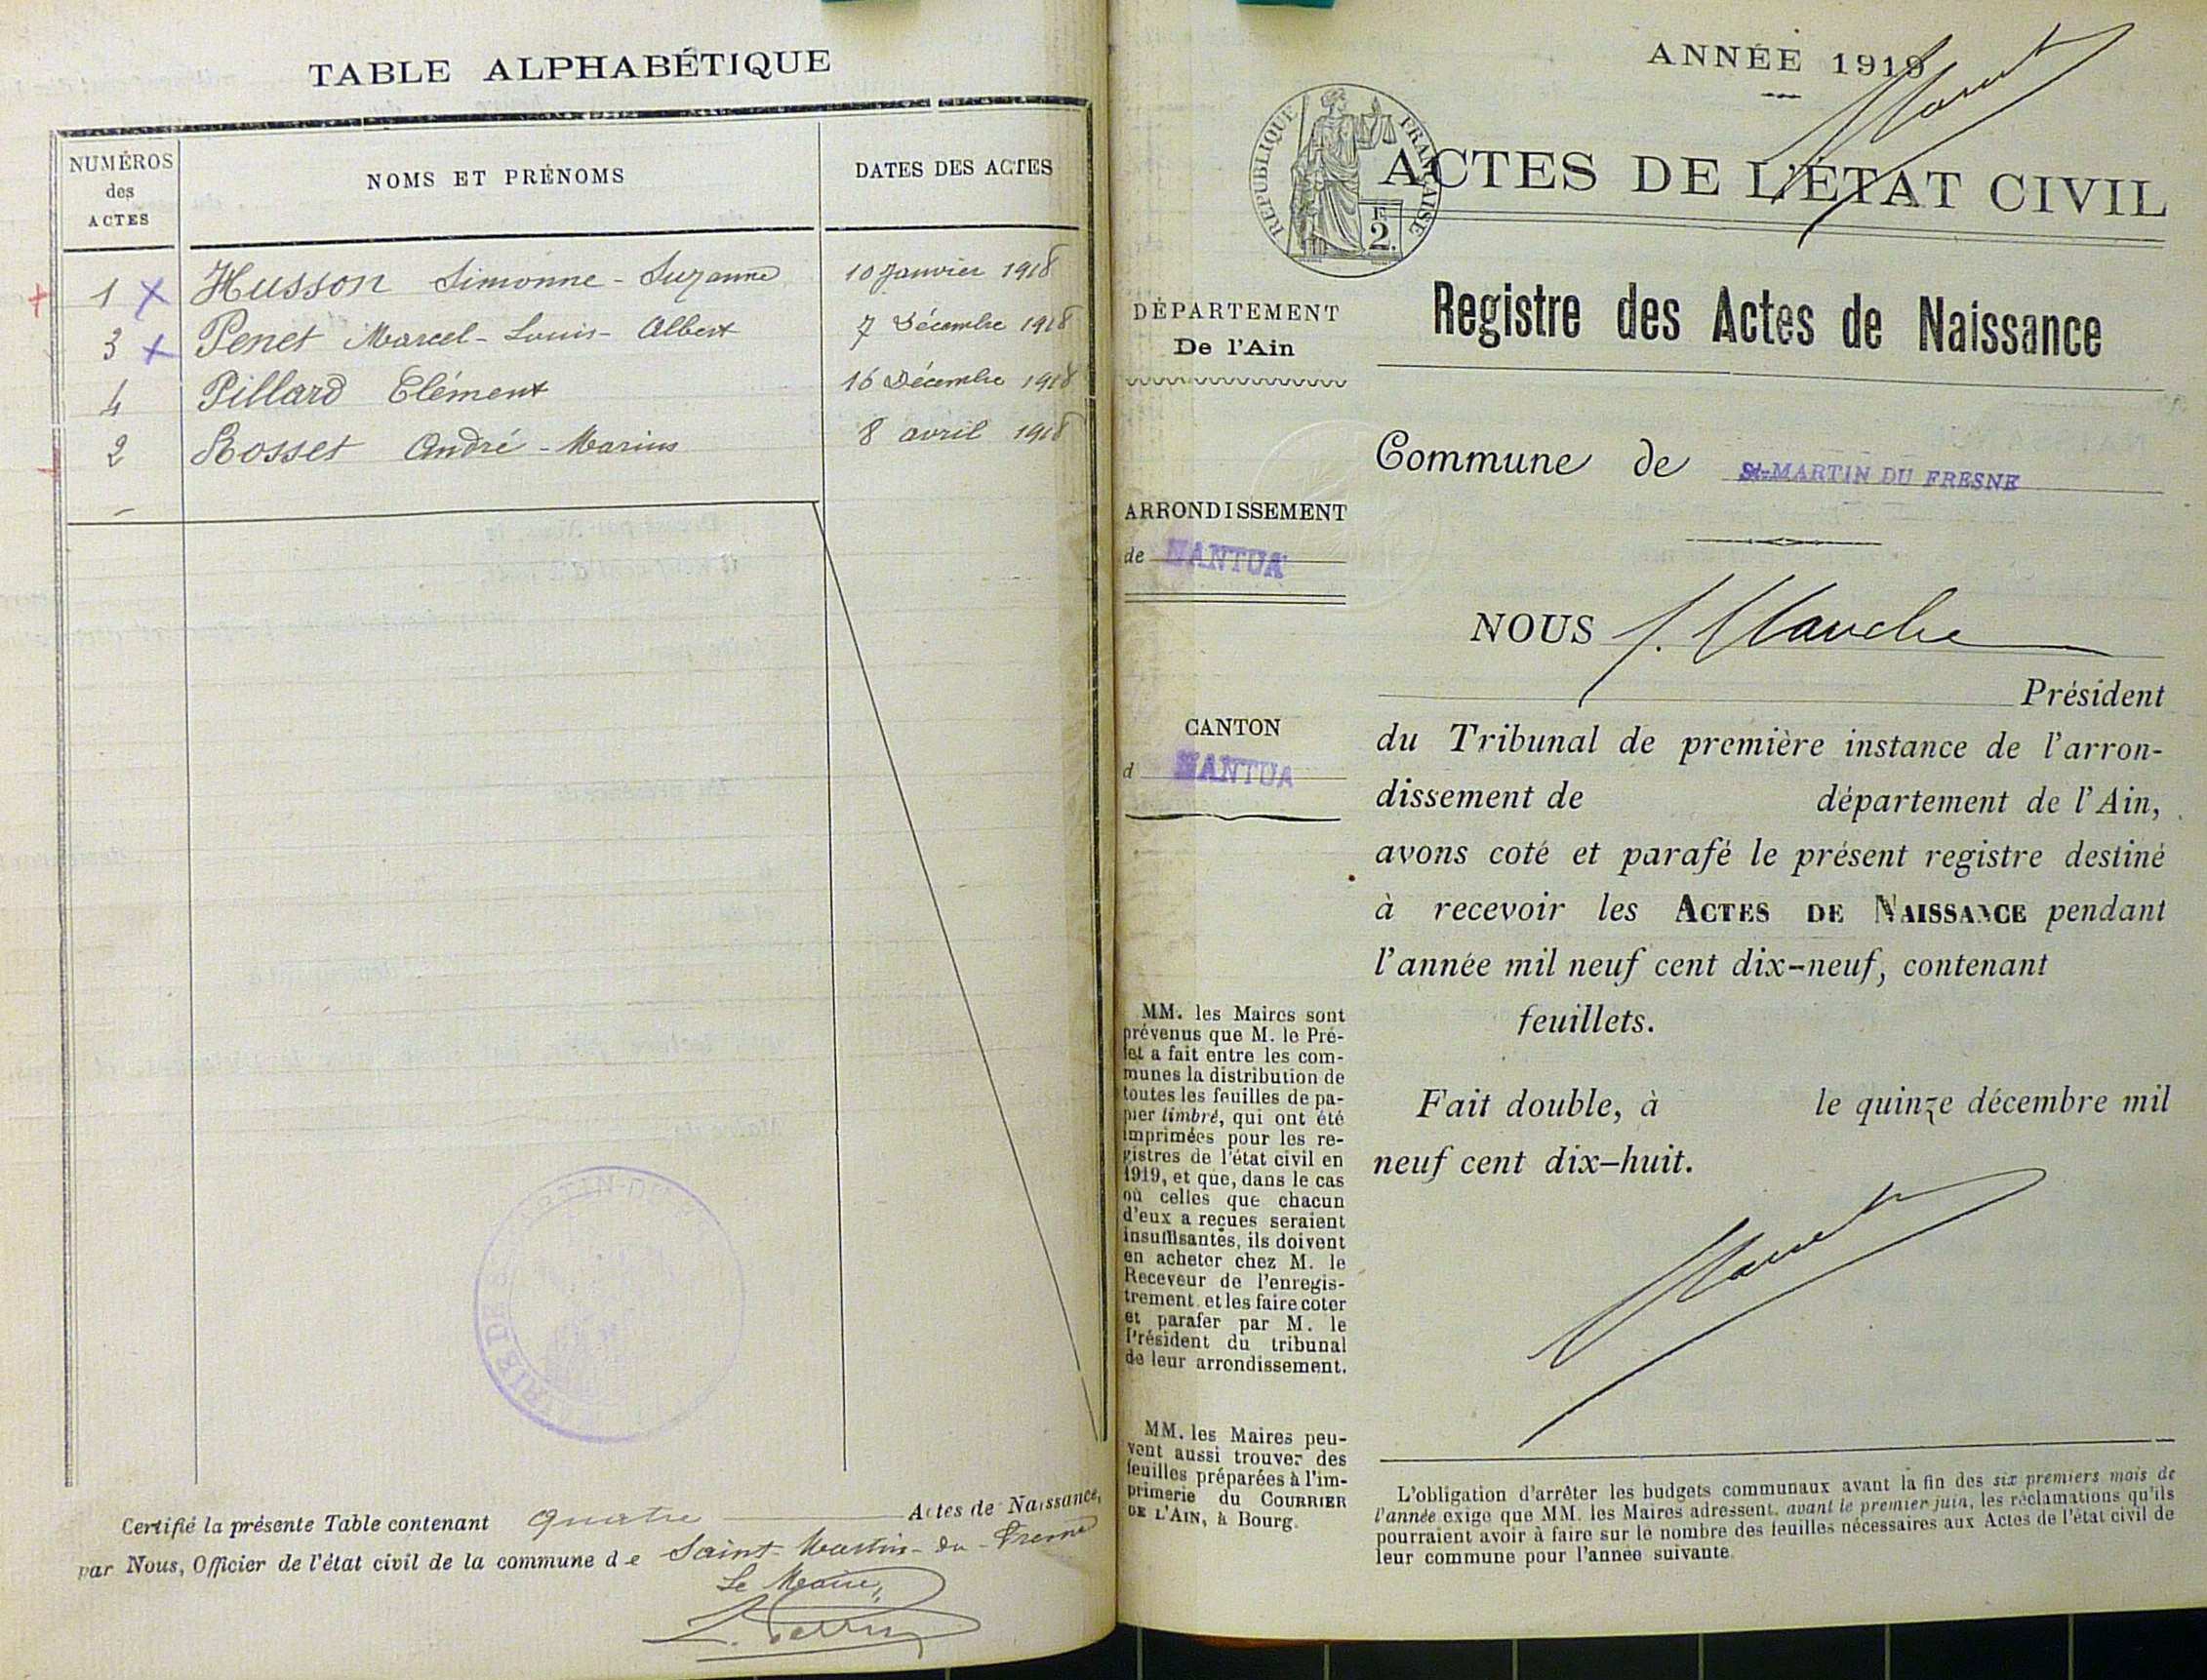 TABLE ALPHABÉTIQUE
NUMÉROS
des
ACTES
NOMS ET PRÉNOMS
DATES DES ACTES
1 Husson Simonne - Suzanne 10 Janvier 1918
3 Penet Marcel - Louis - Albert 7 Décembre 1918
4 Pillard Clément 16 Décembre 1918
2 Rosset André - Marius 8 avril 1918
Certifié la présente Table contenant quatre Actes de Naissance,
par Nous, Officier de l'état civil de la commune de Saint-Martin-du-Fresne
Le Maire,
ANNÉE 1919
RÉPUBLIQUE FRANÇAISE
2
ACTES DE L'ÉTAT CIVIL
Registre des Actes de Naissance
DÉPARTEMENT
De l'Ain
Commune de St-MARTIN DU FRESNE
ARRONDISSEMENT
de NANTUA
CANTON
d NANTUA
NOUS
Président
du Tribunal de première instance de l'arron-
dissement de département de l'Ain,
avons coté et parafé le présent registre destiné
à recevoir les ACTES DE NAISSANCE pendant
l'année mil neuf cent dix-neuf, contenant
feuillets.
Fait double, à le quinze décembre mil
neuf cent dix-huit.
MM. les Maires sont
prévenus que M. le Pré-
fet a fait entre les com-
munes la distribution de
toutes les feuilles de pa-
pier timbré, qui ont été
imprimées pour les re-
gistres de l'état civil en
1919, et que, dans le cas
où celles que chacun
d'eux a reçues seraient
insuffisantes, ils doivent
en acheter chez M. le
Receveur de l'enregis-
trement et les faire coter
et parafer par M. le
Président du tribunal
de leur arrondissement.
MM. les Maires peu-
vent aussi trouver des
feuilles préparées à l'im-
primerie du COURRIER
DE L'AIN, à Bourg.
L'obligation d'arrêter les budgets communaux avant la fin des six premiers mois de
l'année exige que MM. les Maires adressent, avant le premier juin, les réclamations qu'ils
pourraient avoir à faire sur le nombre des feuilles nécessaires aux Actes de l'état civil de
leur commune pour l'année suivante.